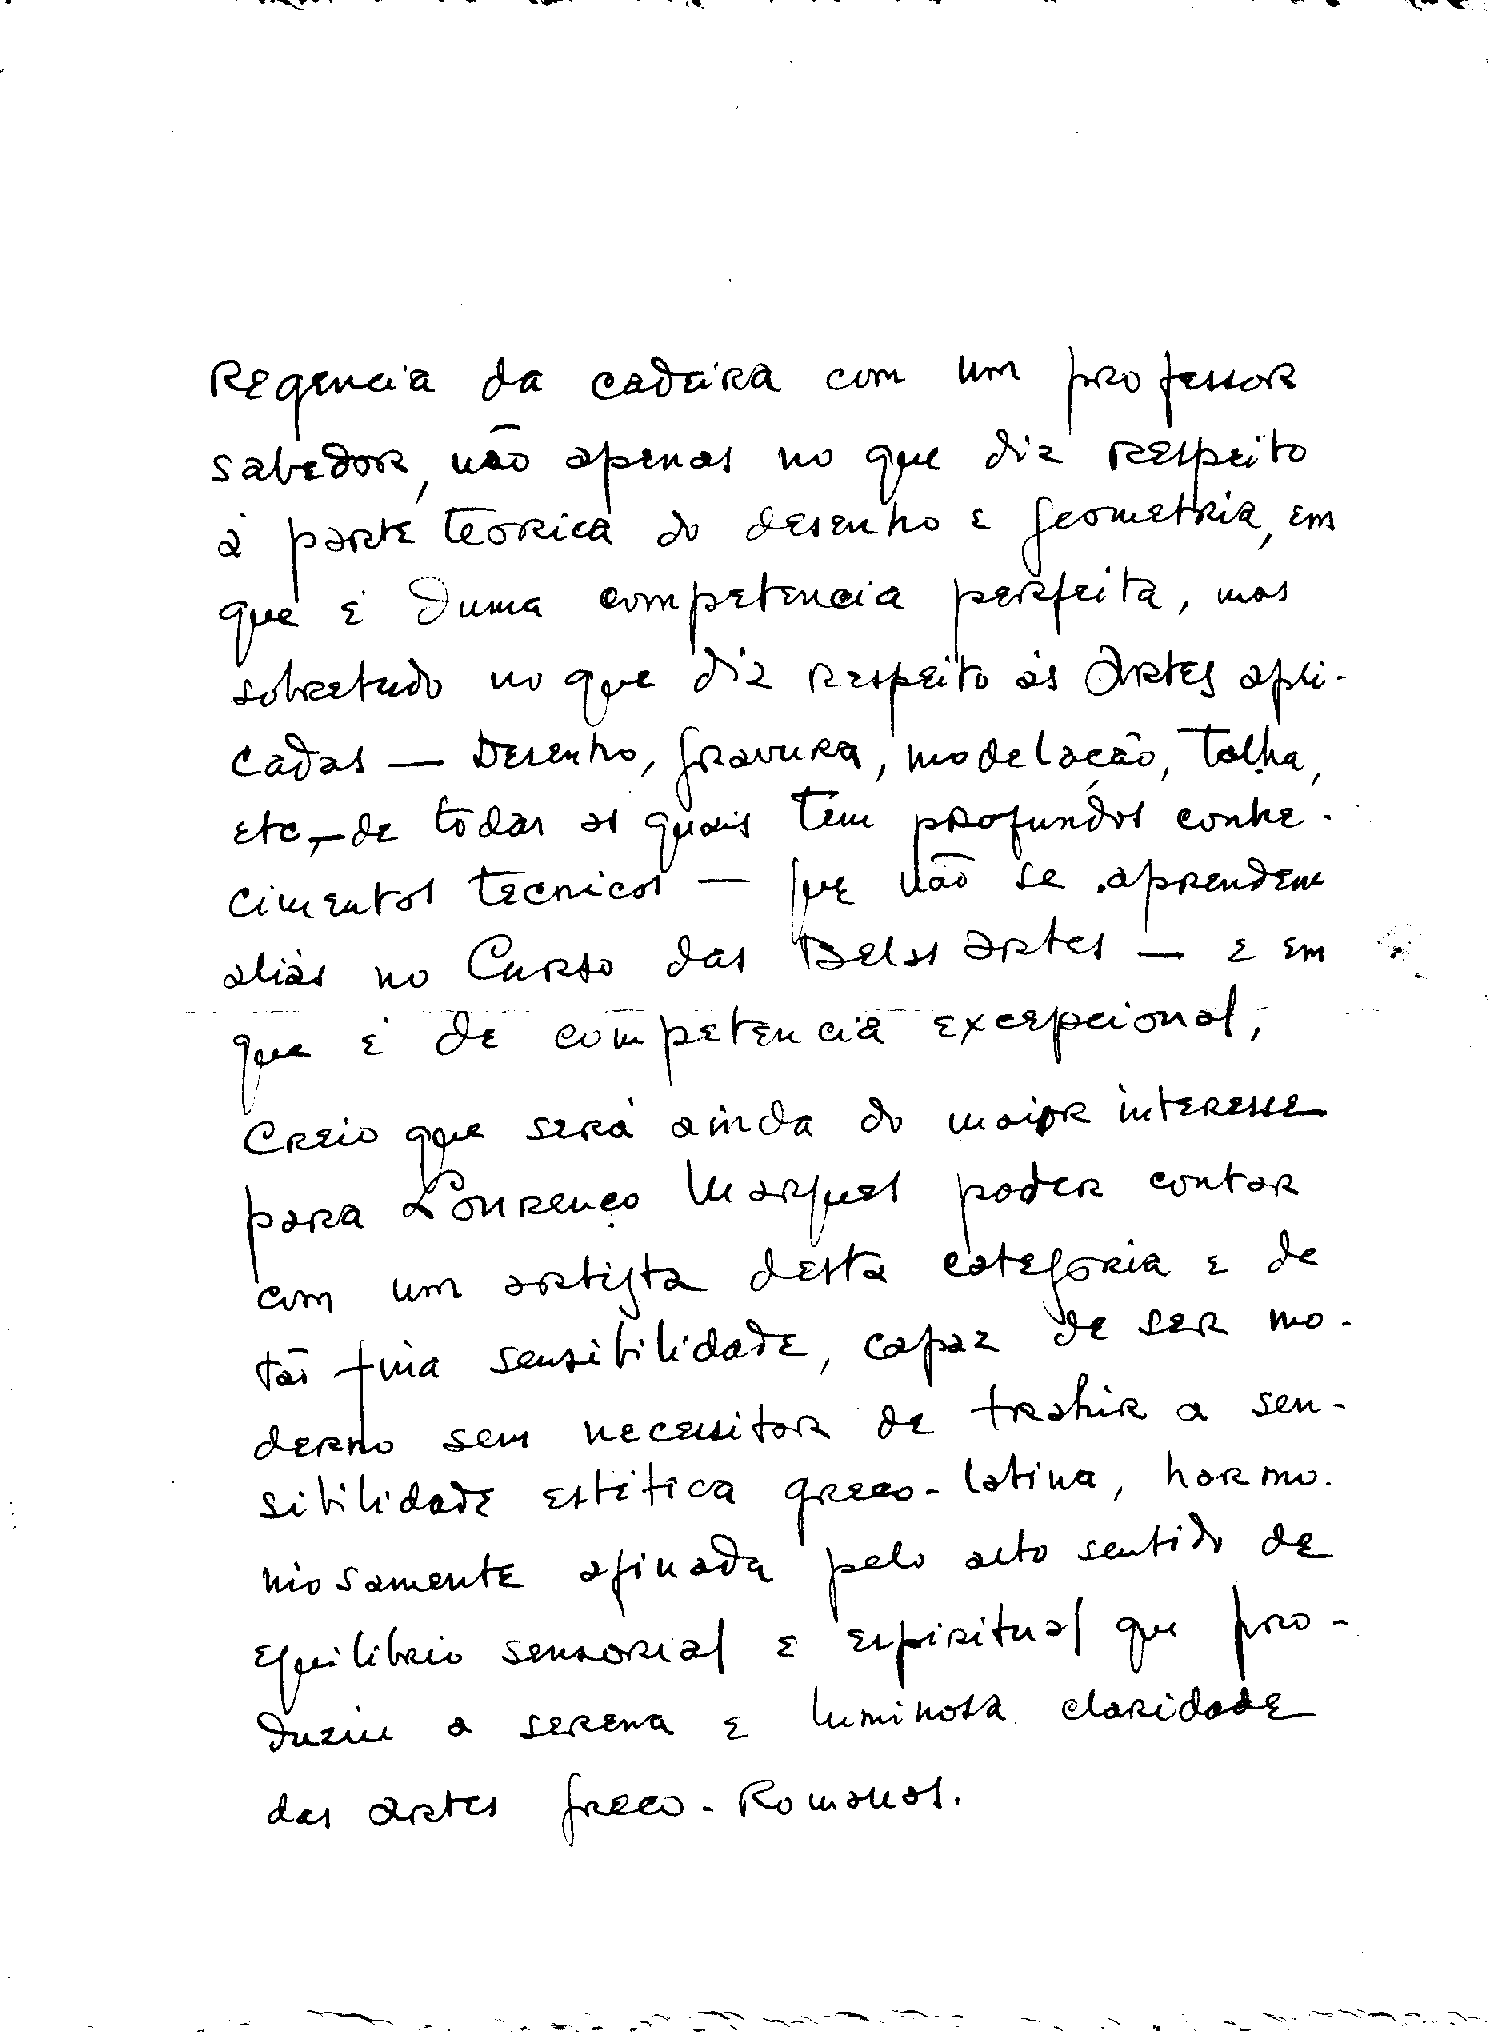 Regencia da cadeira com um professor
sabedor, não apenas no que diz respeito
á parte teorica do desenho e geometria, em
que é duma competencia perfeita, mas
sobretudo no que diz respeito ás Artes apli-
cadas — Desenho, gravura, modelação, Talha,
etc, — de todas as quais tem profundos conhe-
cimentos tecnicos — que não se aprendem
aliás no Curso das Belas Artes — e em
que é de competencia excepcional,
Creio que será ainda do maior interesse
para Lourenço Marques poder contar
com um artista desta categoria e de
tão fina sensibilidade, capaz de ser mo-
derno sem necessitar de trahir a sen-
sibilidade estética greco-latina, harmo-
niosamente afinada pelo alto sentido de
equilibrio sensorial e espiritual que pro-
duziu a serena e luminosa claridade
das artes greco-Romanas.